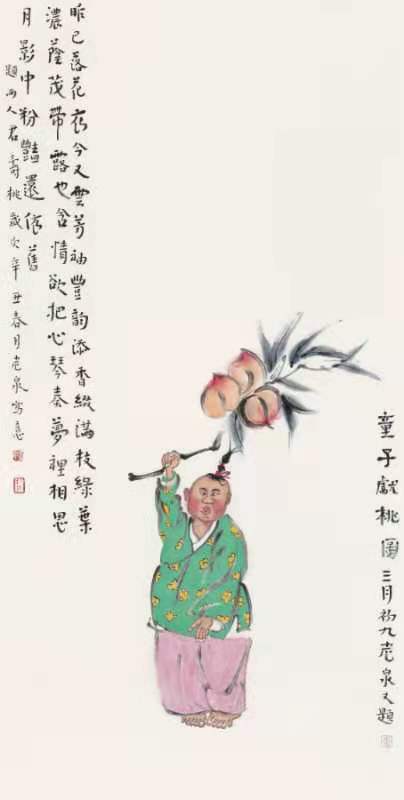 童子戲桃圖 三月初九老泉又題
昨已落花衣今又雲芳袖豐韵添香綴滿枝綠葉
濃蔭茂帶露也含情欲把心琴奏夢裡相思
月影中粉豔還依舊
題雨人君壽桃歲次辛丑春月老泉寫意